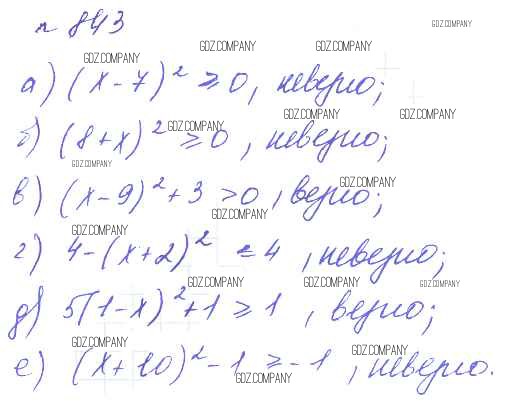 n 843
GDZ.COMPANY
GDZ.COMPANY GDZ.COMPANY
GDZ.COMPANY
а) (x-7)² ⩾0, неверно;
GDZ.COMPANY GDZ.COMPANY
GDZ.COMPANY
б) (8+x)² ⩾0, неверно;
GDZ.COMPANY
GDZ.COMPANY
в) (x-9)²+3 >0, верно;
GDZ.COMPANY
GDZ.COMPANY
г) 4-(x+2)² = 4, неверно;
GDZ.COMPANY GDZ.COMPANY GDZ.COMPANY
д) 5(1-x)²+1 ⩾ 1, верно;
GDZ.COMPANY GDZ.COMPANY
е) (x+10)²-1 ⩾-1, неверно.
GDZ.COMPANY